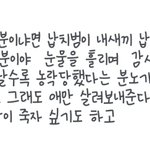 분이냐면 납치범이 내새끼 납
분이야 눈물을 흘리며 감사
갈수록 농락당했다는 분노가
그래도 애만 살려보내준다
이 죽자 싶기도 하고